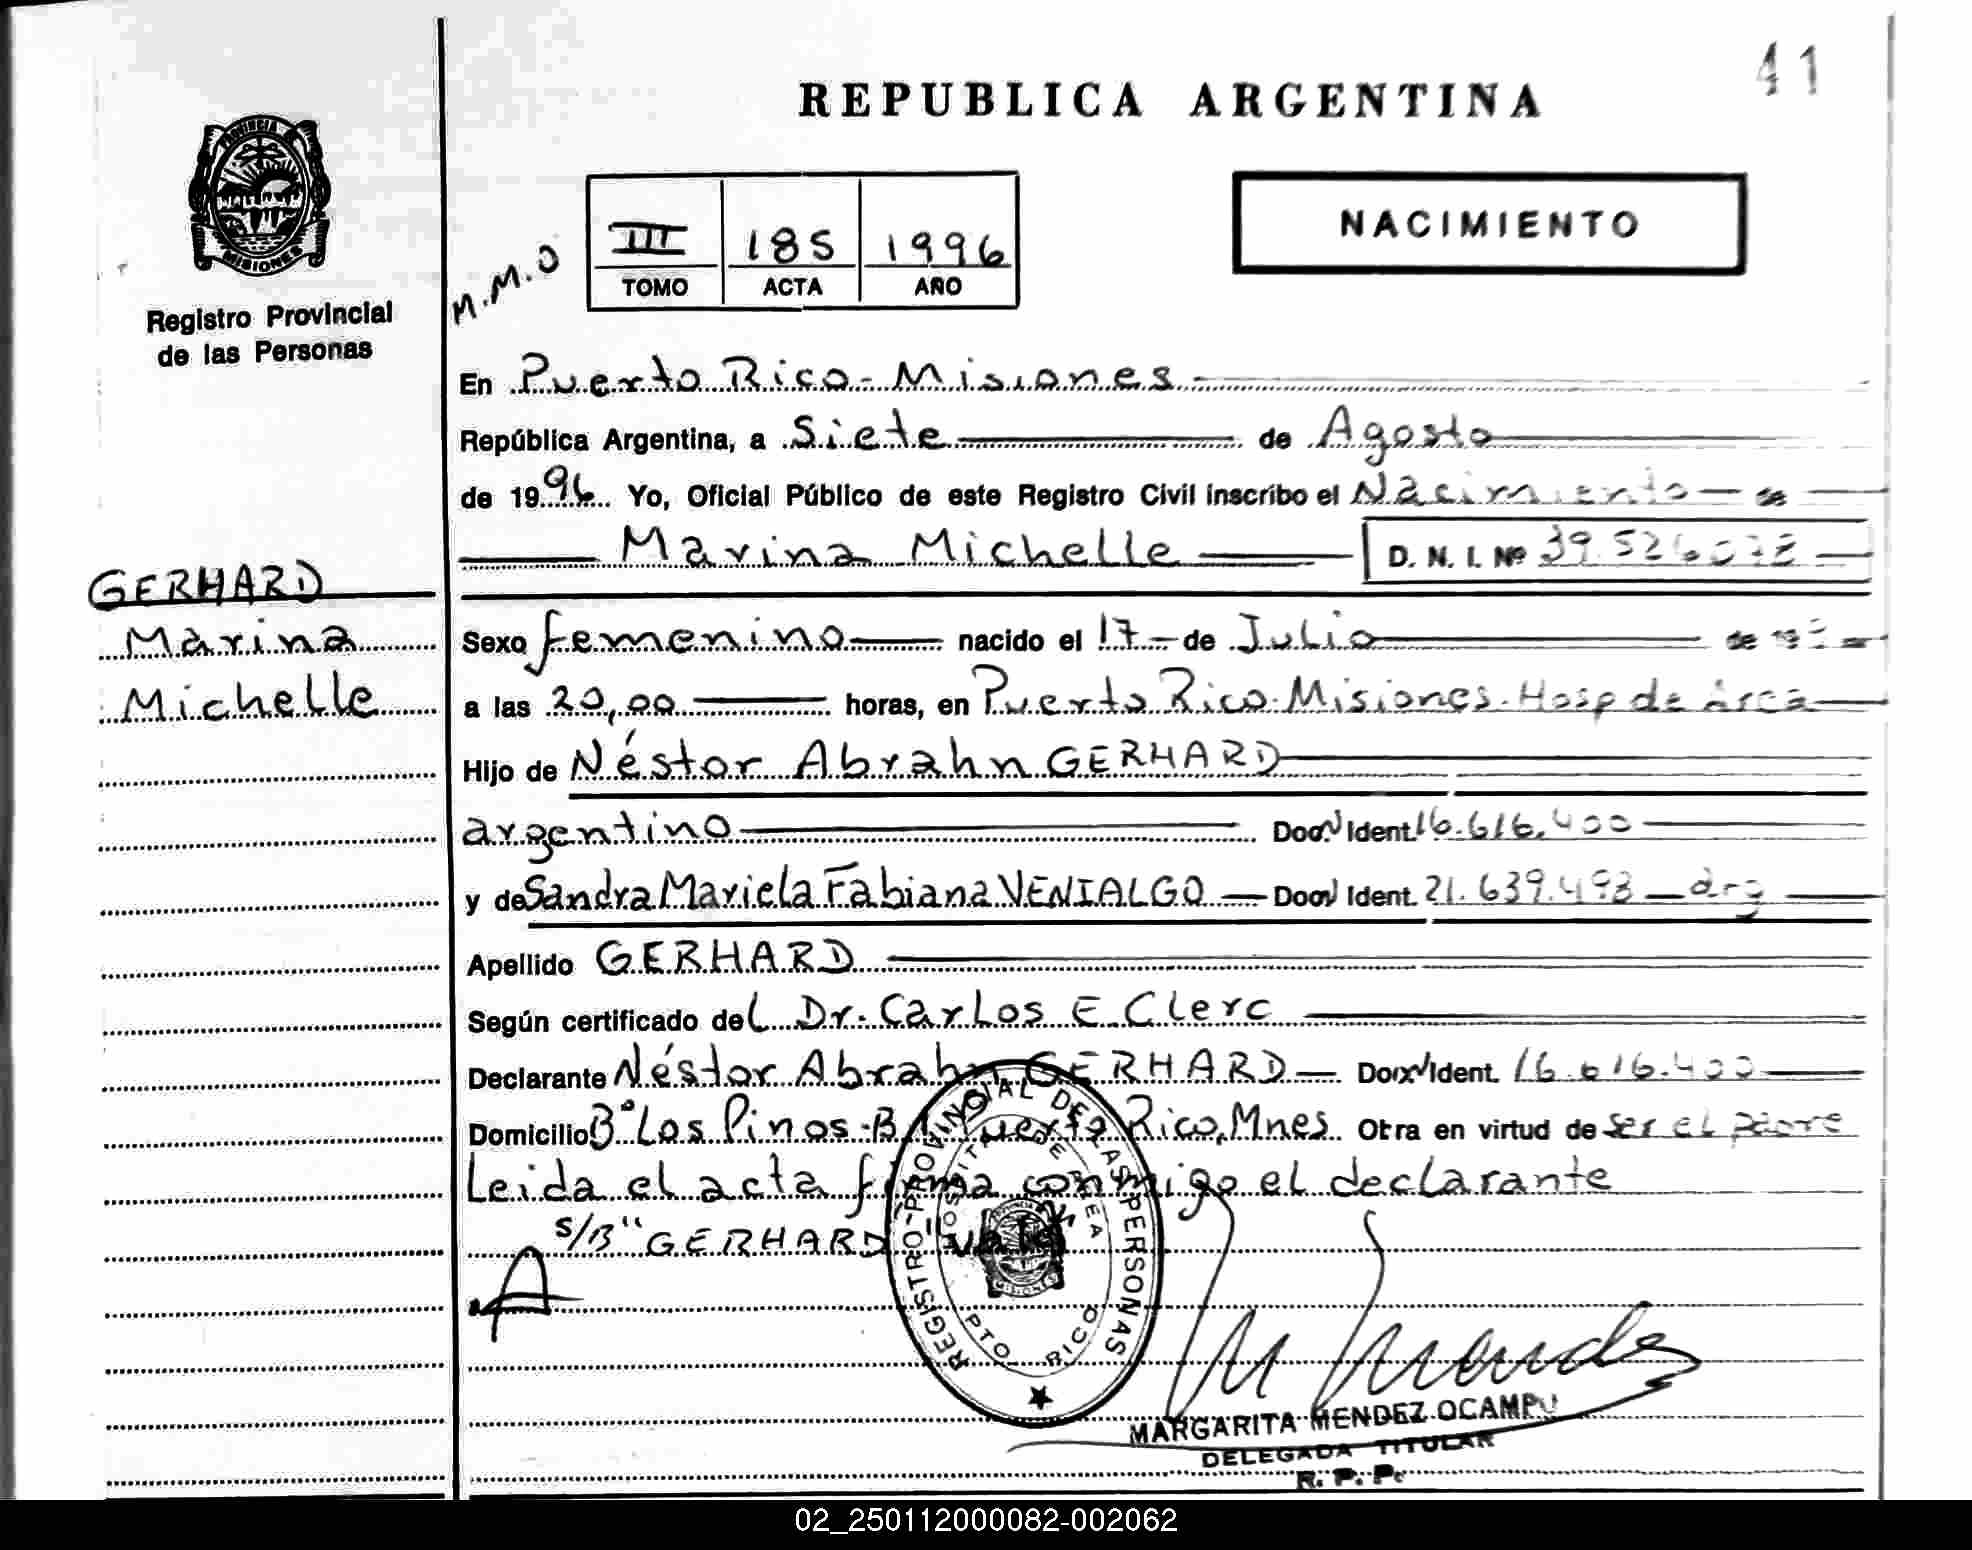 41
REPUBLICA ARGENTINA
PROVINCIA
MISIONES
Registro Provincial
de las Personas
M.M.O
III 185 1996
TOMO ACTA AÑO
NACIMIENTO
En Puerto Rico - Misiones
República Argentina, a Siete de Agosto
de 1996 Yo, Oficial Público de este Registro Civil inscribo el Nacimiento de
Marina Michelle D. N. I. Nº
GERHARD
Marina
Michelle
Sexo femenino nacido el 17 - de Julio de
a las 20,00 horas, en Puerto Rico - Misiones - Hosp de Area
Hijo de Néstor Abrahn GERHARD
argentino Doc. Ident. 16.616.400
y de Sandra Mariela Fabiana VENIALGO Doc. Ident. 21.639.493 arg
Apellido GERHARD
Según certificado del Dr. Carlos E Clerc
Declarante Néstor Abrahn GERHARD Doc. Ident. 16.616.400
Domicilio Bº Los Pinos Puerto Rico, Mnes Otra en virtud de ser el padre
Leida el acta firma conmigo el declarante
S/B "GERHARD" Vale
REGISTRO PROVINCIAL DE LAS PERSONAS
HOSPITAL DE AREA
PTO. RICO
MARGARITA MENDEZ OCAMPO
DELEGADA TITULAR
R. P. P.
02_250112000082-002062